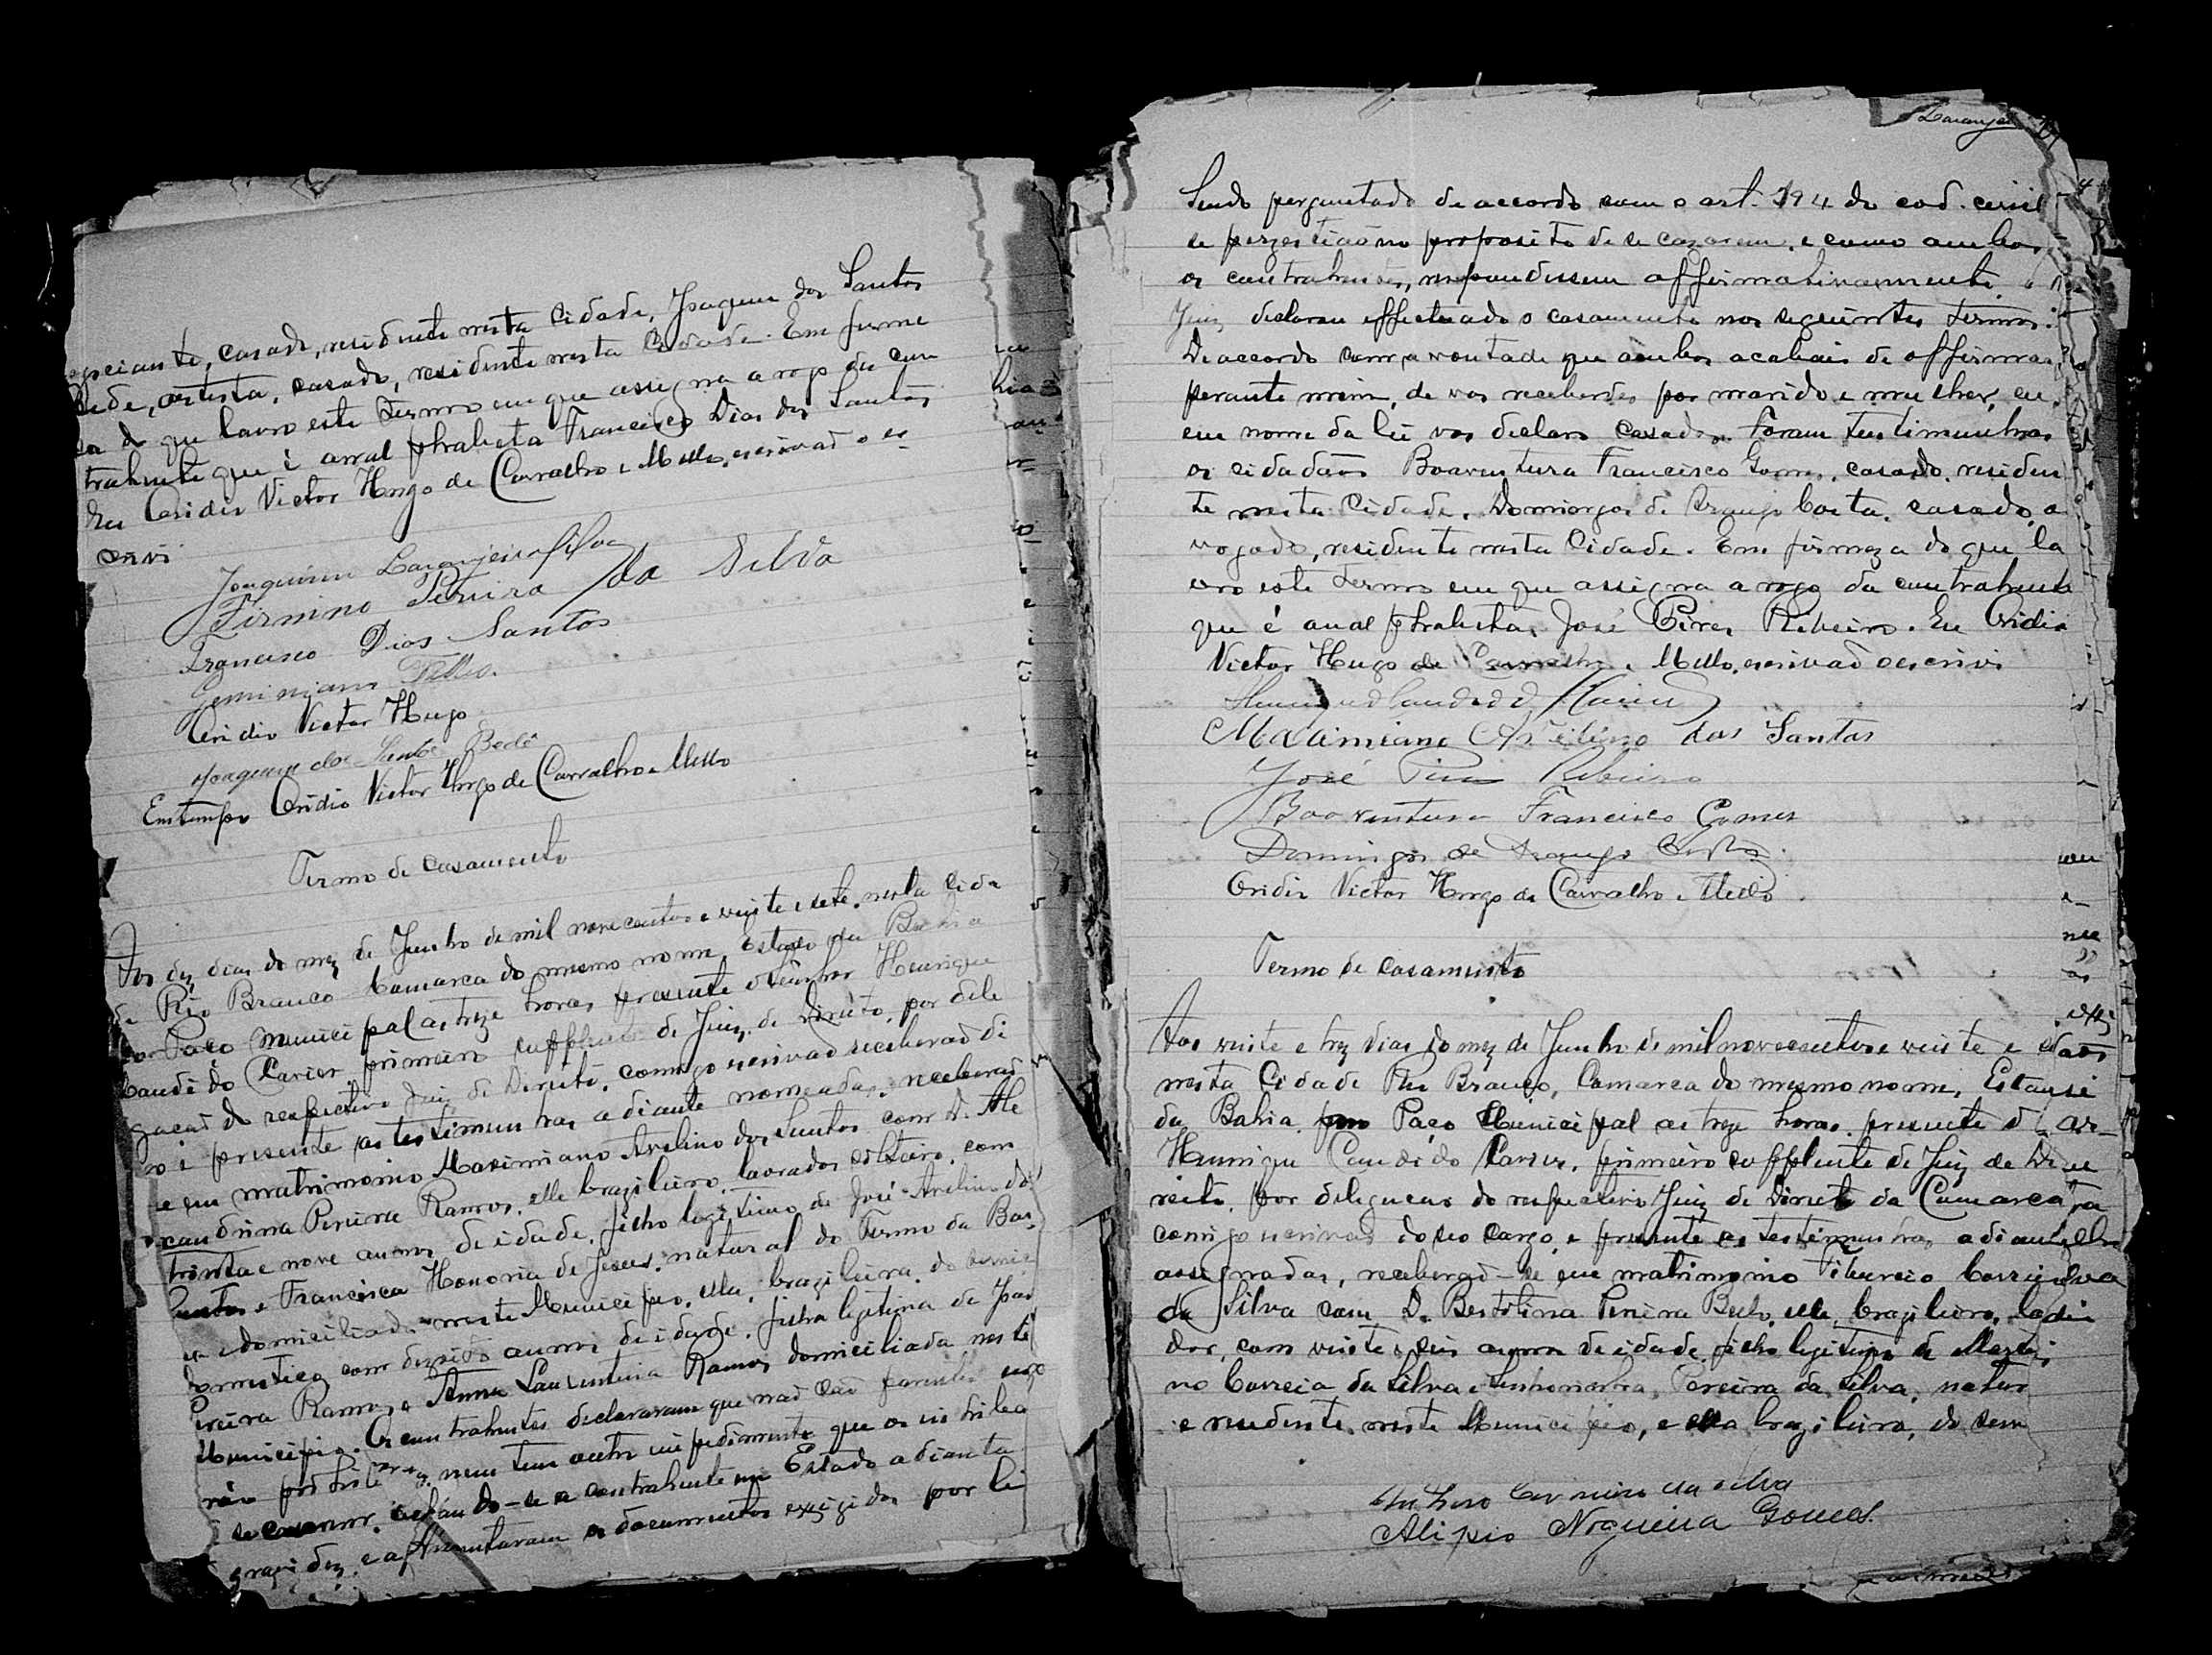 negociante, casado, residente nesta Cidade, Joaquim dos Santos
Bedê, artista, casado, residente nesta Cidade. Em firme
sa do que lavro este termo em que assigna a rogo da con
trahente que é analphabeta Francisco Dias dos Santos
Eu Oridio Victor Hugo de Carvalho e Mello, escrivão o es
crevi
Joaquim Laranjeira Silva
Firmino Pereira da Silva
Francisco Dias Santos
Geminiano Tello.
Oridio Victor Hugo
Joaquim dos Santos Bedê
Em tempo Oridio Victor Hugo de Carvalho e Mello
Termo de casamento
Aos dez dias do mez de Junho de mil novecentos e vinte e sete, nesta Cida
de Rio Branco Comarca do mesmo nome, Estado da Bahia
no Paço Municipal as treze horas presente o Senhor Henrique
Candido Xavier, primeiro supplente de Juiz de Direito, por dele
gacaõ do respectivo Juiz de Direito, comigo escrivaõ
e presente as testemunhas adiante nomeadas, receberaõ
se em matrimonio Maximiano Avelino dos Santos com D. Ale
xandrina Pereira Ramos, elle brazileiro, lavrador, solteiro, com
trinta e nove annos de idade, filho legitimo de José Avelino dos
Santos e Francisca Honoria de Jesus, natural do Termo da
e domiciliado neste Municipio, ella, brazileira, do servico
domestico, com annos de idade, filha legitima de
Pereira Ramos e Anna Laurentina Ramos domiciliada neste
Municipio. Os contrahentes declararam que naõ saõ parentes
nem tem outro impedimento que os inhiba
se casarem, achando-se a contrahente em Estado adiantado
gravidez, e apresentaram os documentos exigidos por lei
Laranjeira
Sendo perguntado de accordo com o art. 194 do cod. civil
se persestiaõ no proposito de se cazarem, e como ambos
os contrahentes, respondessem affirmativamente, o
Juiz declarou effectuado o casamento nos seguintes termos:
De accordo com a vontade que ambos acabais de affirmar
perante mim, de vos receberdes por marido e mulher, eu,
em nome da lei vos declaro casados. Foram testimunhas
os cidadãos Boaventura Francisco Gomes, casado, residen
te nesta Cidade, Domingos de Araujo Costa, casado, a
vogado, residente nesta Cidade. Em firmeza do que la
vro este termo em que assigna a rogo da contrahente
que é analphabeta, José Pires Ribeiro. Eu Oridio
Victor Hugo de Carvalho e Mello, escrivaõ o escrevi
Henrique Candido Xavier
Maximiano Avelino dos Santos
José Pires Ribeiro
Boaventura Francisco Gomes
Domingos de Araujo Costa.
Oridio Victor Hugo de Carvalho e Mello.
Termo de casamento
Aos vinte e trez dias do mez de Junho de mil novecentos e vinte e
nesta Cidade Rio Branco, Comarca do mesmo nome, Estado
da Bahia, Paço Municipal as treze horas, presente o
Henrique Candido Xavier, primeiro supplente de Juiz de Di
reito, por delegacaõ do respectivo Juiz de Direito da Comarca
comigo escrivaõ do seo cargo, e presente as testimunhas adiante
assignadas, receberaõ-se em matrimonio Tiburcio Correia
da Silva com D. Bertolina Pereira Bello, elle, brazileiro,
dor, com vinte e seis annos de idade, filho legitimo de
no Correia da Silva e Pereira da Silva, natur
e residente neste Municipio, e ella brazileira, do
Carneiro da Silva
Alipio Nogueira Gomes.